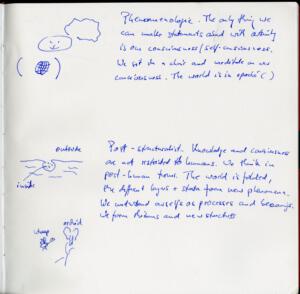 Phenomenologic. The only thing we
can make statements about with certainty
is our consciousness/self-consciousness.
We sit in a chair and meditate on our
consciousness. The world is in epoché ( )
( )
outside
inside
Post-structuralist. Knowledge and consciousness
are not restricted to humans. We think in
post-human terms. The world is folded,
the different layers + strata form new phenomena.
We understand ourselves as processes and becomings.
We form rhizomes and new structures
orchid
wasp